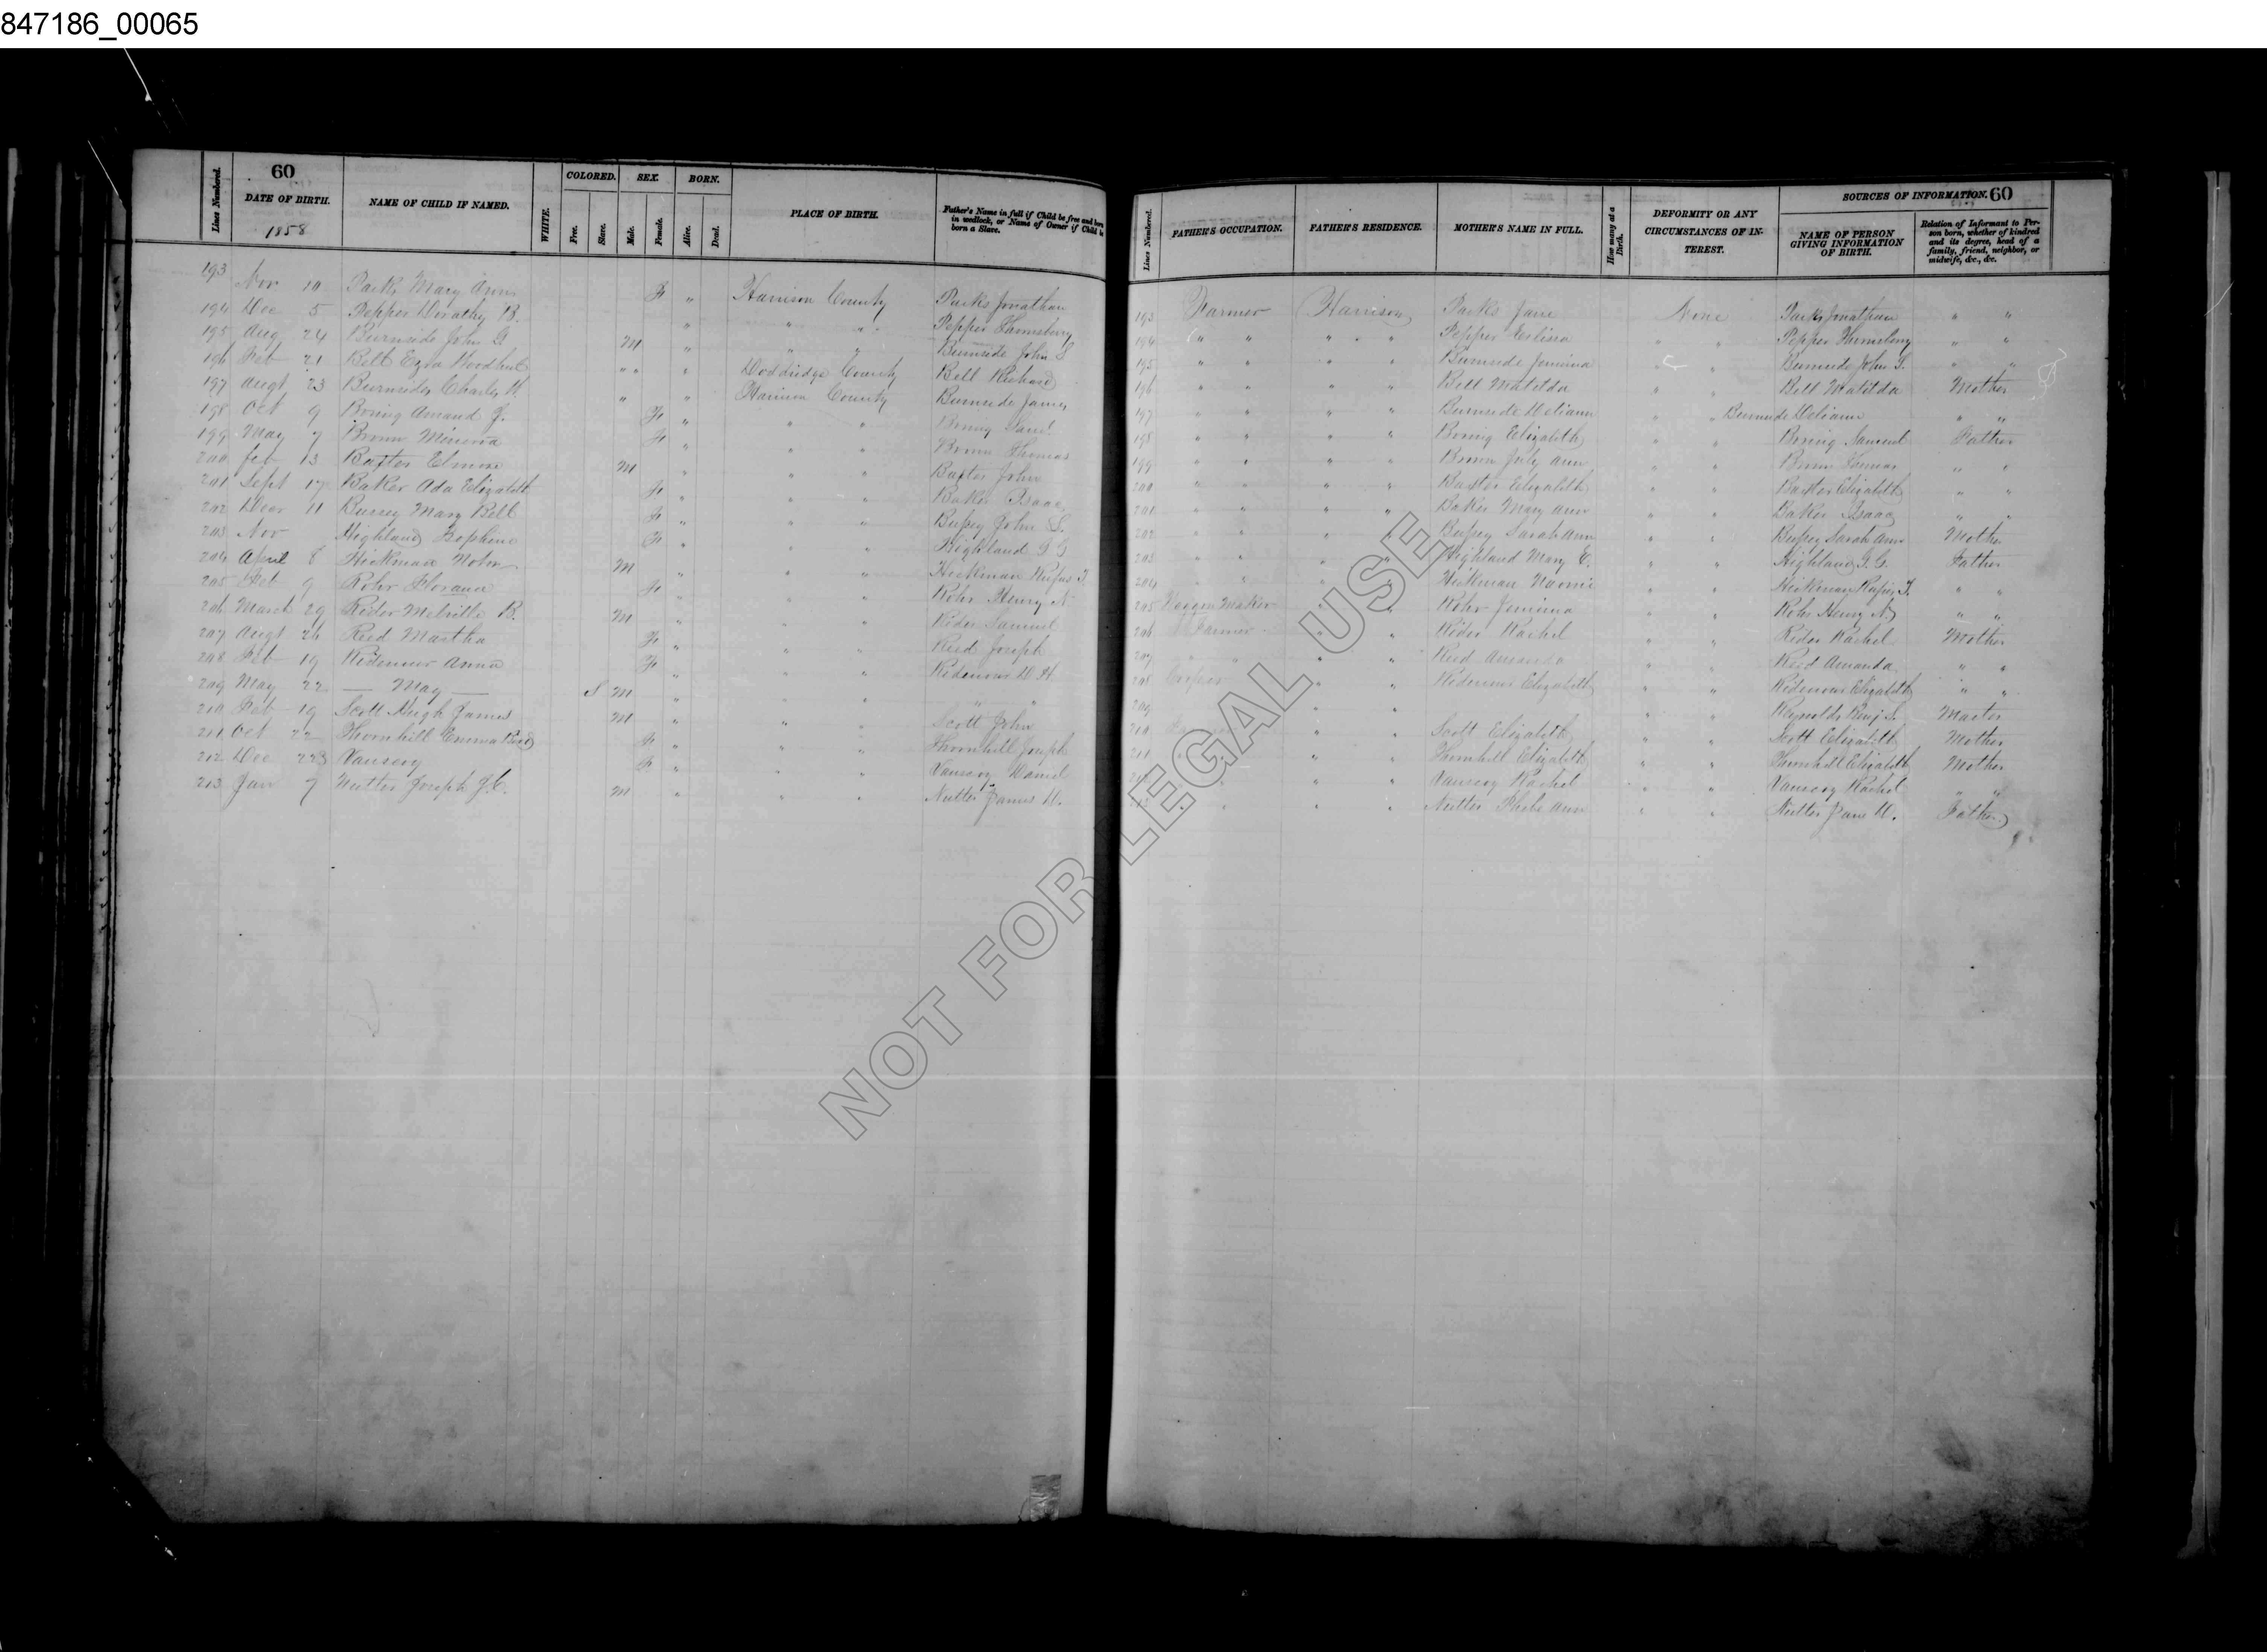 847186_00065
60
Lines Numbered.
DATE OF BIRTH.
1858
NAME OF CHILD IF NAMED.
WHITE.
COLORED.
Free.
Slave.
SEX.
Male.
Female.
BORN.
Alive.
Dead.
PLACE OF BIRTH.
Father's Name in full if Child be free and born
in wedlock, or Name of Owner if Child be
born a Slave.
Lines Numbered.
FATHER'S OCCUPATION.
FATHER'S RESIDENCE.
MOTHER'S NAME IN FULL.
How many at a
Birth.
DEFORMITY OR ANY
CIRCUMSTANCES OF IN-
TEREST.
SOURCES OF INFORMATION. 60
NAME OF PERSON
GIVING INFORMATION
OF BIRTH.
Relation of Informant to Per-
son born, whether of kindred
and its degree, head of a
family, friend, neighbor, or
midwife, &c., &c.
193 Nov 10 Parks Mary Ann F " Harrison County Parks Jonathan 193 Farmer Harrison Parks Jane None Parks Jonathan " "
194 Dec 5 Pepper Dorathy B. " " " Pepper Thornsberry 194 " " " " Pepper " " Pepper " "
195 Aug 24 Burnside John M " " " Burnside John S 195 " " " " Burnside Jemima " Burnside John S. " "
196 Feb 21 Bell Ezra " " " Doddridge County Bell Richard 196 " " " " Bell Matilda " " Bell Matilda Mother
197 Augt 23 Burnsides Charles " " Harrison County Burnside James 197 " " " " Burnside " " Burnside " "
198 Oct 9 Boring Amand J. F " " " Boring Saml. 198 " " " " Boring Elizabeth " " Boring Samuel Father
199 May 7 Brown Minerva F " " " Brown Thomas 199 " " " " Brown July Ann " " Brown Thomas " "
200 Feb 13 Baxter Elmore M " " " Baxter John 200 " " " " Baxter Elizabeth " " Baxter Elizabeth " "
201 Sept 17 Baker Ada Elizabeth F " " " Baker Isaac 201 " " " " Baker Mary Ann " " Baker Isaac " "
202 Decr 11 Bussey Mary Bell F " " " Bussey John S. 202 " " " " Bussey Sarah Ann " " Bussey Sarah Ann Mother
203 Nov Highland F " " " Highland 203 " " " " Highland Mary E. " " Highland Father
204 April 8 Hickman M " " " Hickman Rufus T 204 " " " Hickman Naomi " " Hickman Rufus T. " "
205 Feb 9 Rohr Florann F " " " Rohr Henry N 205 Waggon Maker " " Rohr Jemima " " Rohr Henry N " "
206 March 29 Rider Melville B. M " " " Rider Samuel 206 Farmer " " Rider Rachel " " Rider Rachel Mother
207 Augt 26 Reed Martha F " " " Reed Joseph 207 " " " " Reed Amanda " " Reed Amanda " "
208 Feb 19 Ridenour Anna F " " " Ridenour D H 208 Cooper " " Ridenour Elizabeth " " Ridenour Elizabeth " "
209 May 22 — May — S M " " " " " 209 " " " " Reynolds Benj S. Master
210 Feb 19 Scott Hugh James M " " " Scott John 210 " " Scott Elizabeth " " Scott Elizabeth Mother
211 Oct 22 Thornhill Emma F " " " Thornhill Joseph 211 " " Thornhill Elizabeth " " Thornhill Elizabeth Mother
212 Dec 23 Vanscoy F " " " Vanscoy Daniel 212 " " Vanscoy Rachel " " Vanscoy Rachel " "
213 Jan 7 Nutter Joseph J.C. M " " " Nutter James 213 " " " Nutter Phebe Ann " " Nutter Father
NOT FOR LEGAL USE